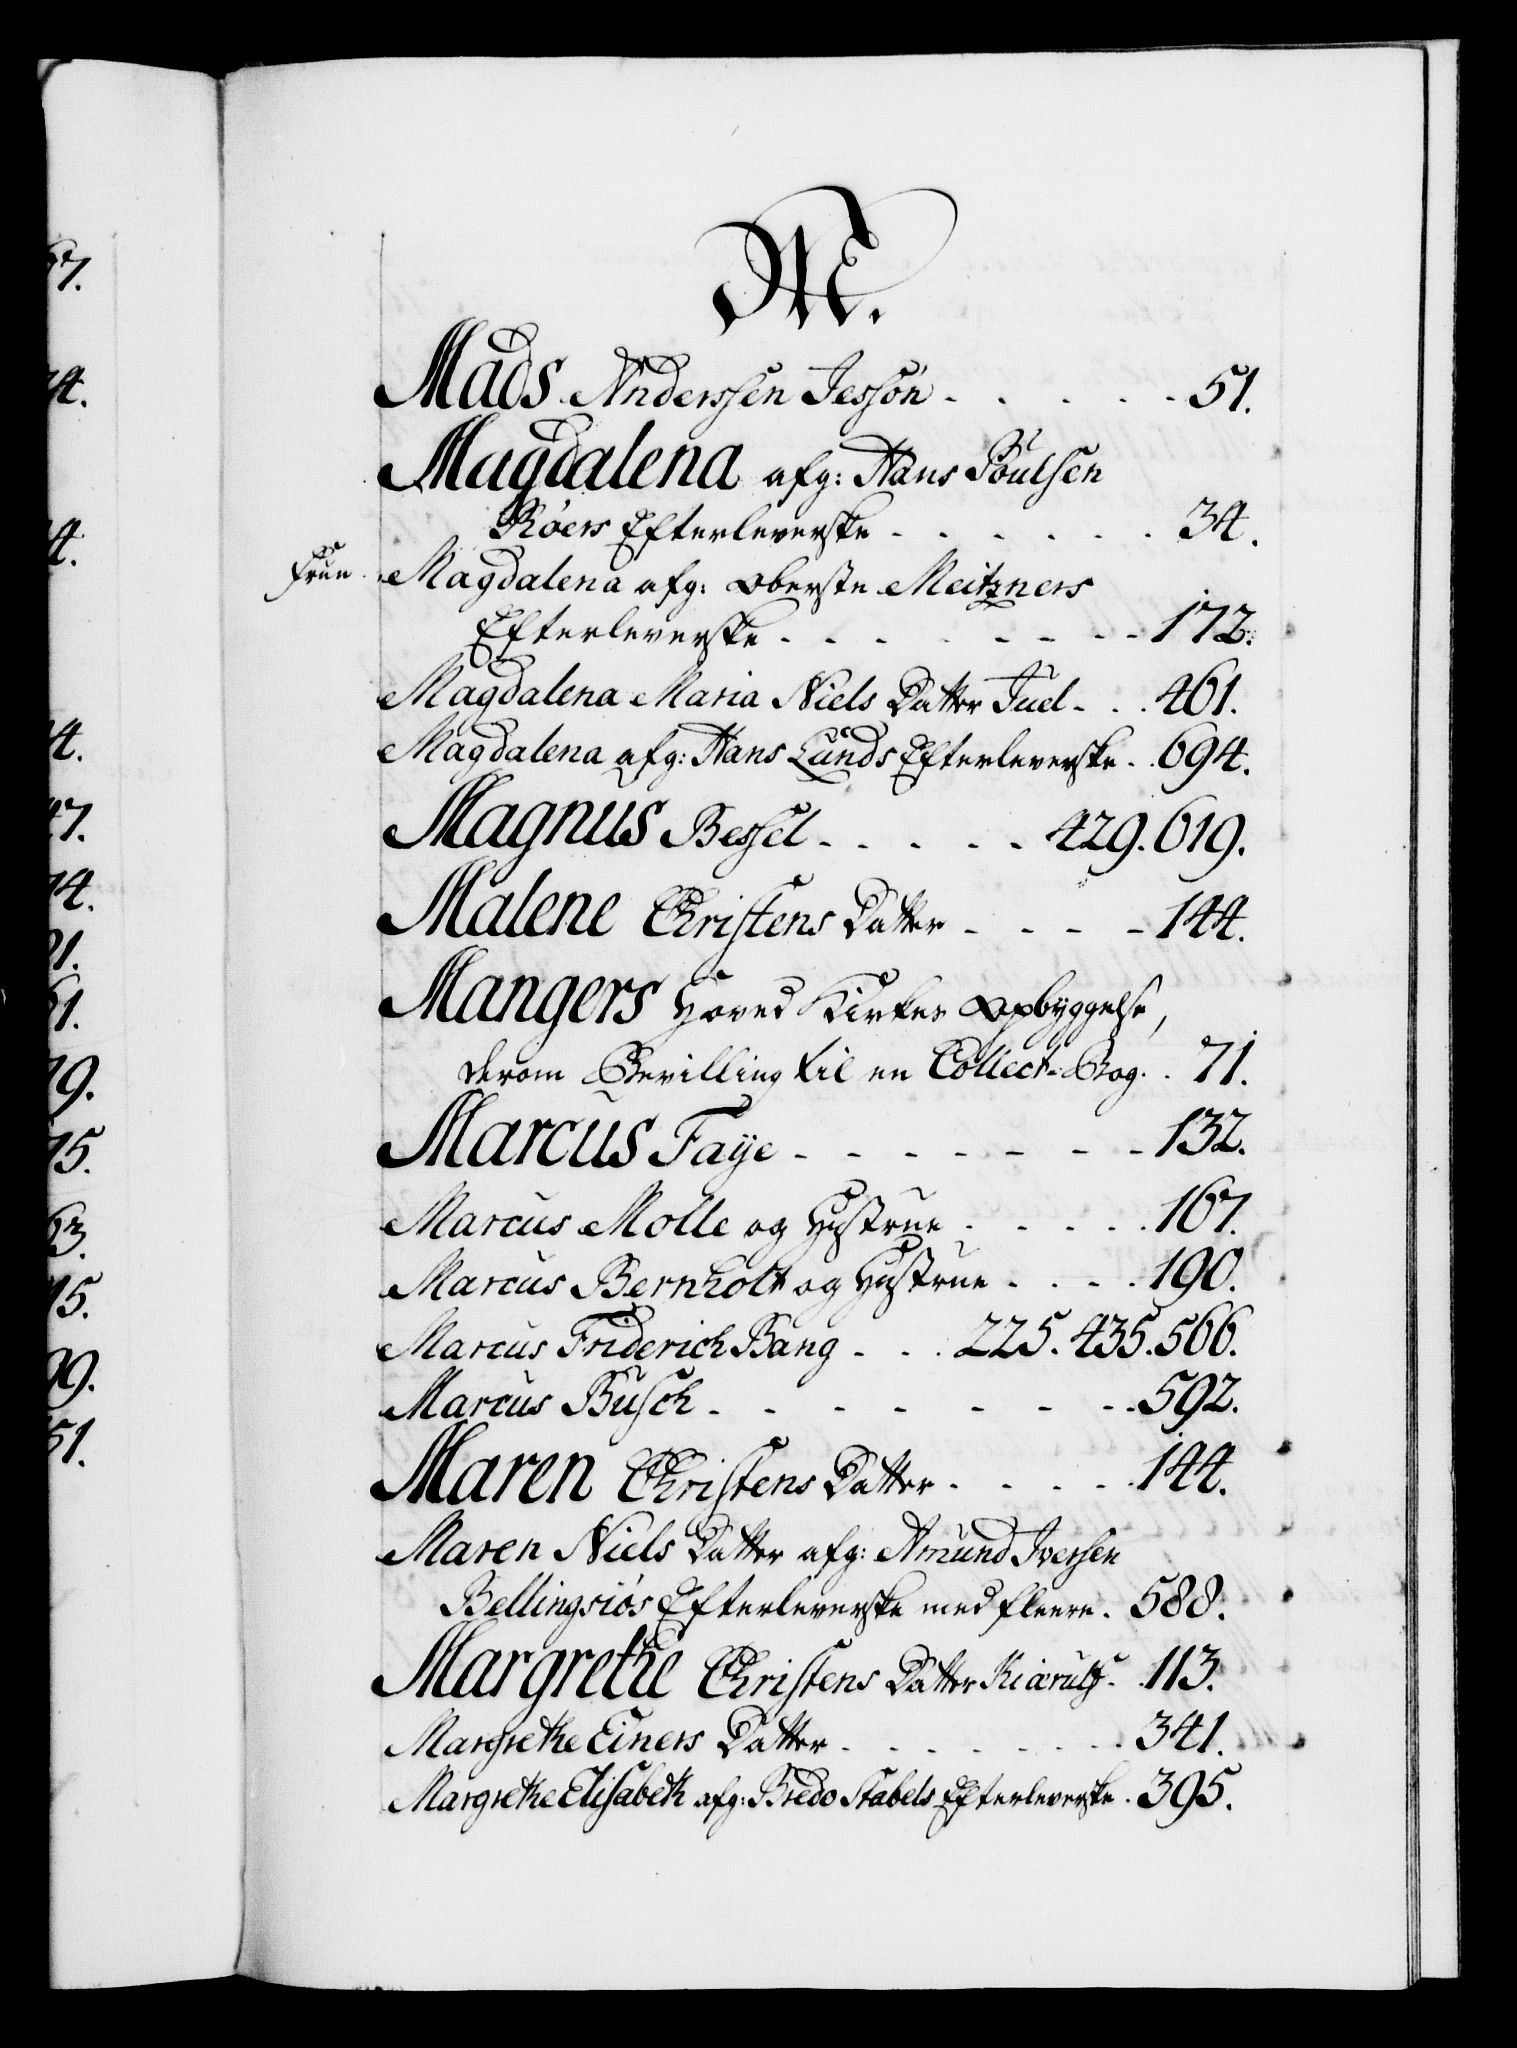 M.
Mads Anderssen Jessön - - - - - 51.
Magdalena afg: Hans Poulsen
Röers Efterleverske - - - - - - 34.
Frue Magdalena afg: Oberste Meitzners
Efterleverske - - - - - - - 172.
Magdalena Maria Niels Datter Juel - - - 461.
Magdalena afg: Hans Lunds Efterleverske - - 694.
Magnus Bessel - - - - - 429. 619.
Malene Christens Datter - - - - 144.
Mangers Hoved Kirkes Opbyggelse,
derom Bevilling til en Collect-Bog. - 71.
Marcus Faye - - - - - - - 132.
Marcus Molle og Hustrue - - - - - 167.
Marcus Bernholt og Hustrue - - - - 190.
Marcus Friderich Bang - - - 225. 435. 566.
Marcus Busch - - - - - - - 592.
Maren Christens Datter - - - - - 144.
Maren Niels Datter afg: Amund Iversen
Bellingsiös Efterleverske med fleere - 588.
Margrethe Christens Datter Kiærulf - - 113.
Margrethe Einers Datter - - - - - - - 341.
Margrethe Elisabeth afg: Bredo Stabels Efterleverske - 395.
67.
14.
4.
4.
47.
14.
91.
61.
19.
15.
63.
15.
99.
51.